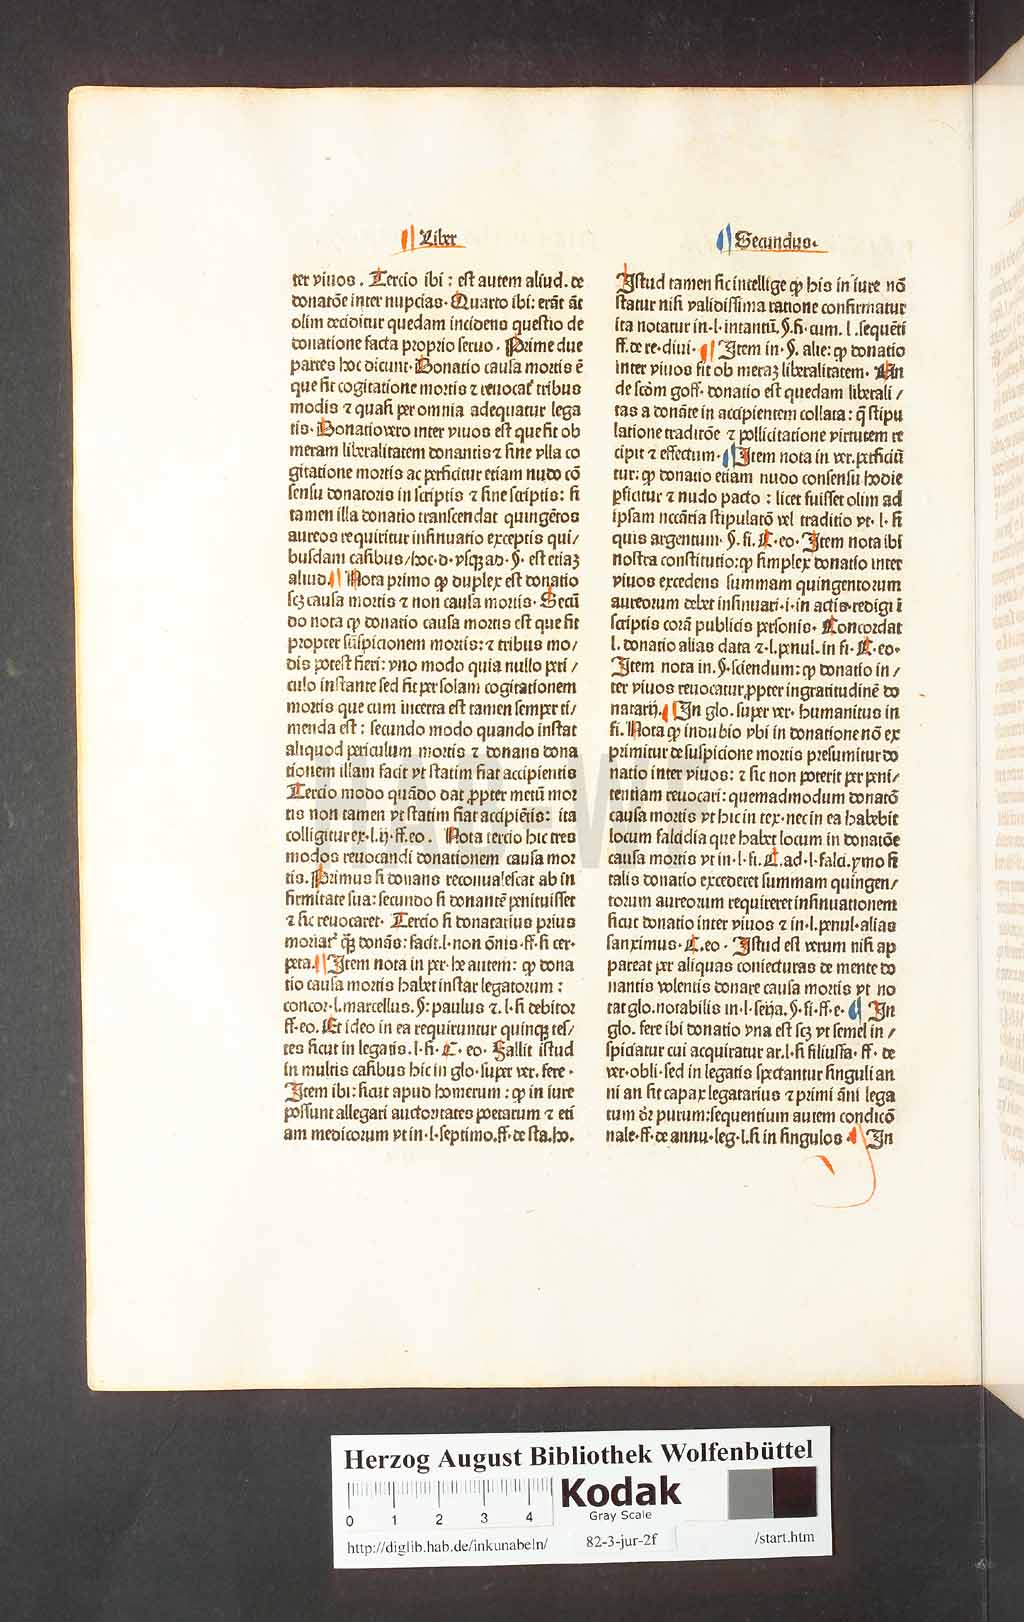 Liber
Secundus.
ter viuos. Tercio ibi: est autem aliud. de
donatōe inter nupcias. Quarto ibi: erāt āt
olim deciditur quedam incidens questio de
donatione facta proprio seruo. Prime due
partes hoc dicunt. Donatio causa mortis ē
que fit cogitatione mortis ⁊ reuocat᷑ tribus
modis ⁊ quasi per omnia adequatur lega
tis. Donatio vero inter viuos est que fit ob
meram liberalitatem donantis ⁊ sine vlla co
gitatione mortis ac perficitur etiam nudo cō
sensu donatoris in scriptis ⁊ sine scriptis: si
tamen illa donatio transcendat quingētos
aureos requiritur insinuatio exceptis qui/
busdam casibus/hoc.d.vsqꝫ ad.§. est etiaꝫ
aliud. Nota primo ꝙ duplex est donatio
scꝫ causa mortis ⁊ non causa mortis. Secū
do nota ꝙ donatio causa mortis est que fit
propter suspicionem mortis: ⁊ tribus mo/
dis potest fieri: vno modo quia nullo peri/
culo instante sed fit per solam cogitationem
mortis que cum incerta est tamen semper ti/
menda est: secundo modo quando instat
aliquod periculum mortis ⁊ donans dona
tionem illam facit vt statim fiat accipientis
Tercio modo quādo dat ꝓpter metū mor
tis non tamen vt statim fiat accipiētis: ita
colligitur ex.l.ij.ff.eo. Nota tercio hic tres
modos reuocandi donationem causa mor
tis. Primus si donans reconualescat ab in
firmitate sua: secundo si donantē penituisset
⁊ sic reuocaret. Tercio si donatarius prius
moriat᷑ qꝫ donās: facit.l.non ōnis.ff.si cer.
peta. Item nota in ver. he autem: ꝙ dona
tio causa mortis habet instar legatorum:
concor.l.marcellus.§: paulus ⁊.l.fi debitor
ff.eo. Et ideo in ea requiruntur quinqꝫ tes/
tes sicut in legatis.l.fi.C.eo. Fallit istud
in multis casibus hic in glo.super ver. fere.
Item ibi: sicut apud homerum: ꝙ in iure
possunt allegari auctoritates poetarum ⁊ eti
am medicorum vt in.l.septimo.ff.de sta.ho.
Istud tamen sic intellige ꝙ his in iure nō
statur nisi validissima ratione confirmatur
ita notatur in.l.intantū.§.fi.cum.l.sequēti
ff.de re.diui. Item in.§. alie: ꝙ donatio
inter viuos fit ob meraꝫ liberalitatem. An
de scōm goff. donatio est quedam liberali/
tas a donāte in accipientem collata: q̄ stipu
latione traditōe ⁊ pollicitatione virtutem re
cipit ⁊ effectum. Item nota in ver.perficiū
tur: ꝙ donatio etiam nudo consensu hodie
ꝑficitur ⁊ nudo pacto: licet fuisset olim ad
ipsam nccāria stipulatō vel traditio vt.l.si
quis argentum.§.fi.C.eo. Item nota ibi
nostra constitutio: ꝙ simplex donatio inter
viuos excedens summam quingentorum
aureorum debet insinuari.i.in actis redigi ī
scriptis corā publicis personis. Concordat
l. donatio alias data ⁊.l.penul.in fi.C.eo.
Item nota in.§.sciendum: ꝙ donatio in/
ter viuos reuocatur ꝓpter ingratitudinē do
natarij. In glo.super ver. humanitus in
fi. Nota ꝙ in dubio vbi in donatione nō ex
primitur de suspicione mortis presumitur do
natio inter viuos: ⁊ sic non poterit per peni/
tentiam reuocari: quemadmodum donatō
causa mortis vt hic in tex.nec in ea habebit
locum falcidia que habet locum in donatōe
causa mortis vt in.l.fi.C.ad.l.falci.ymo si
talis donatio excederet summam quingen/
torum aureorum requireret insinuationem
sicut donatio inter viuos ⁊ in.l.penul.alias
sanximus.C.eo. Istud est verum nisi ap
pareat per aliquas coniecturas de mente do
nantis volentis donare causa mortis vt no
tat glo.notabilis in.l.seija.§.fi.ff.e. In
glo. fere ibi donatio vna est scꝫ vt semel in/
spiciatur cui acquiratur ar.l.si filiusfa.ff.de
ver.obli.sed in legatis spectantur singuli an
ni an sit capax legatarius ⁊ primi āni lega
tum dr̄ purum: sequentium autem condicō
nale.ff.de annu.leg.l.si in singulos. In
HAB-WF
Herzog August Bibliothek Wolfenbüttel
0 1 2 3 4
Kodak
Gray Scale
http://diglib.hab.de/inkunabeln/ 82-3-jur-2f /start.htm